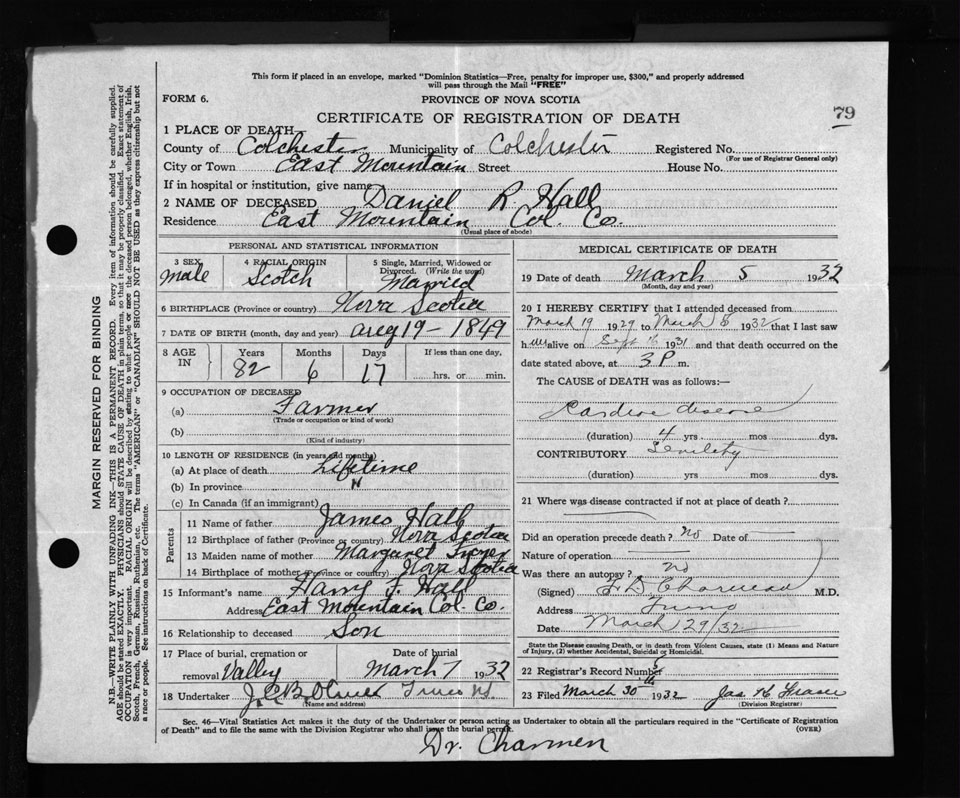 This form if placed in an envelope, marked "Dominion Statistics—Free, penalty for improper use, $300," and properly addressed
will pass through the Mail "FREE"
FORM 6.
PROVINCE OF NOVA SCOTIA
CERTIFICATE OF REGISTRATION OF DEATH
79
1 PLACE OF DEATH
County of Colchester Municipality of Colchester Registered No.
(For use of Registrar General only)
City or Town East Mountain Street House No.
If in hospital or institution, give name
2 NAME OF DECEASED Daniel R. Hall
Residence East Mountain Col. Co.
(Usual place of abode)
PERSONAL AND STATISTICAL INFORMATION
3 SEX male
4 RACIAL ORIGIN Scotch
5 Single, Married, Widowed or Divorced. (Write the word) Married
6 BIRTHPLACE (Province or country) Nova Scotia
7 DATE OF BIRTH (month, day and year) Aug 19 - 1849
8 AGE IN Years Months Days If less than one day,
82 6 17 hrs. or min.
9 OCCUPATION OF DECEASED
(a) Farmer
(Trade or occupation or kind of work)
(b)
(Kind of industry)
10 LENGTH OF RESIDENCE (in years and months)
(a) At place of death Lifetime
(b) In province "
(c) In Canada (if an immigrant)
Parents
11 Name of father James Hall
12 Birthplace of father (Province or country) Nova Scotia
13 Maiden name of mother Margaret
14 Birthplace of mother (Province or country) Nova Scotia
15 Informant's name Harry F. Hall
Address East Mountain Col. Co.
16 Relationship to deceased Son
17 Place of burial, cremation or removal Valley
Date of burial March 7 1932
18 Undertaker Truro N.S.
(Name and address)
MEDICAL CERTIFICATE OF DEATH
19 Date of death March 5 1932
(Month, day and year)
20 I HEREBY CERTIFY that I attended deceased from
March 19 1929 to March 5 1932 that I last saw
h im alive on Sept 1931 and that death occurred on the
date stated above, at 3 P m.
The CAUSE of DEATH was as follows:—
Cardiac disease
(duration) 4 yrs. mos dys.
CONTRIBUTORY Senility
(duration) yrs. mos dys.
21 Where was disease contracted if not at place of death?
Did an operation precede death? no Date of
Nature of operation
Was there an autopsy? no
(Signed) M.D.
Address Truro
Date March 29/32
State the Disease causing Death, or in death from Violent Causes, state (1) Means and Nature
of Injury, (2) whether Accidental, Suicidal or Homicidal.
22 Registrar's Record Number
23 Filed March 30th 1932 Jas H
(Division Registrar)
Sec. 46—Vital Statistics Act makes it the duty of the Undertaker or person acting as Undertaker to obtain all the particulars required in the "Certificate of Registration
of Death" and to file the same with the Division Registrar who shall issue the burial permit.
(OVER)
Dr. Charmen
MARGIN RESERVED FOR BINDING
N.B.—WRITE PLAINLY WITH UNFADING INK—THIS IS A PERMANENT RECORD. Every item of information should be carefully supplied.
AGE should be stated EXACTLY. PHYSICIANS should STATE CAUSE OF DEATH in plain terms, so that it may be properly classified. Exact statement of
OCCUPATION is very important. RACIAL ORIGIN will be described by stating to what people or race the deceased person belonged, whether English, Irish,
Scotch, French, German, Russian, Ruthenian, etc. The terms "AMERICAN" or "CANADIAN" SHOULD NOT BE USED as they express citizenship but not
a race or people. See instructions on back of Certificate.